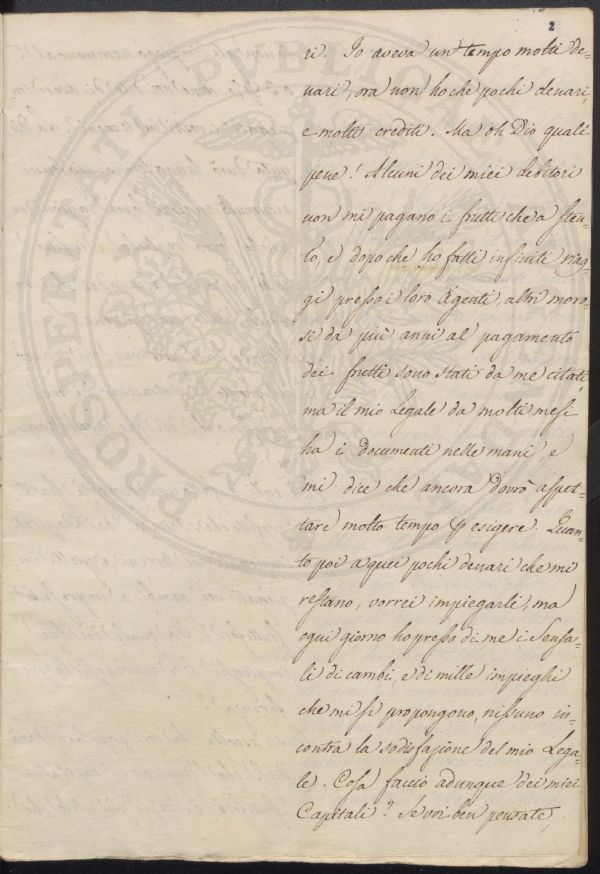 2
ri. Io aveva un tempo molti de-
nari, ora non ho che pochi denari,
e molti crediti. Ma oh Dio quali
pene! Alcuni dei miei debitori
non mi pagano i frutti che a sten-
to, e dopo che ho fatti infiniti viag-
gi presso i loro Agenti, altri moro-
si da più anni al pagamento
dei frutti sono stati da me citati,
ma il mio Legale da molti mesi
ha i documenti nelle mani, e
mi dice che ancora dovrò aspet-
tare molto tempo p esigere. Quan-
to poi a quei pochi denari che mi
restano, vorrei impiegarli, ma
ogni giorno ho presso di me i Sensa-
li di cambi, e di mille impieghi
che mi si propongono, nissuno in-
contra la sodisfazione del mio Lega-
le. Cosa faccio adunque dei miei
Capitali? Se voi ben pensate,
PROSPERITATI PUBLICAE